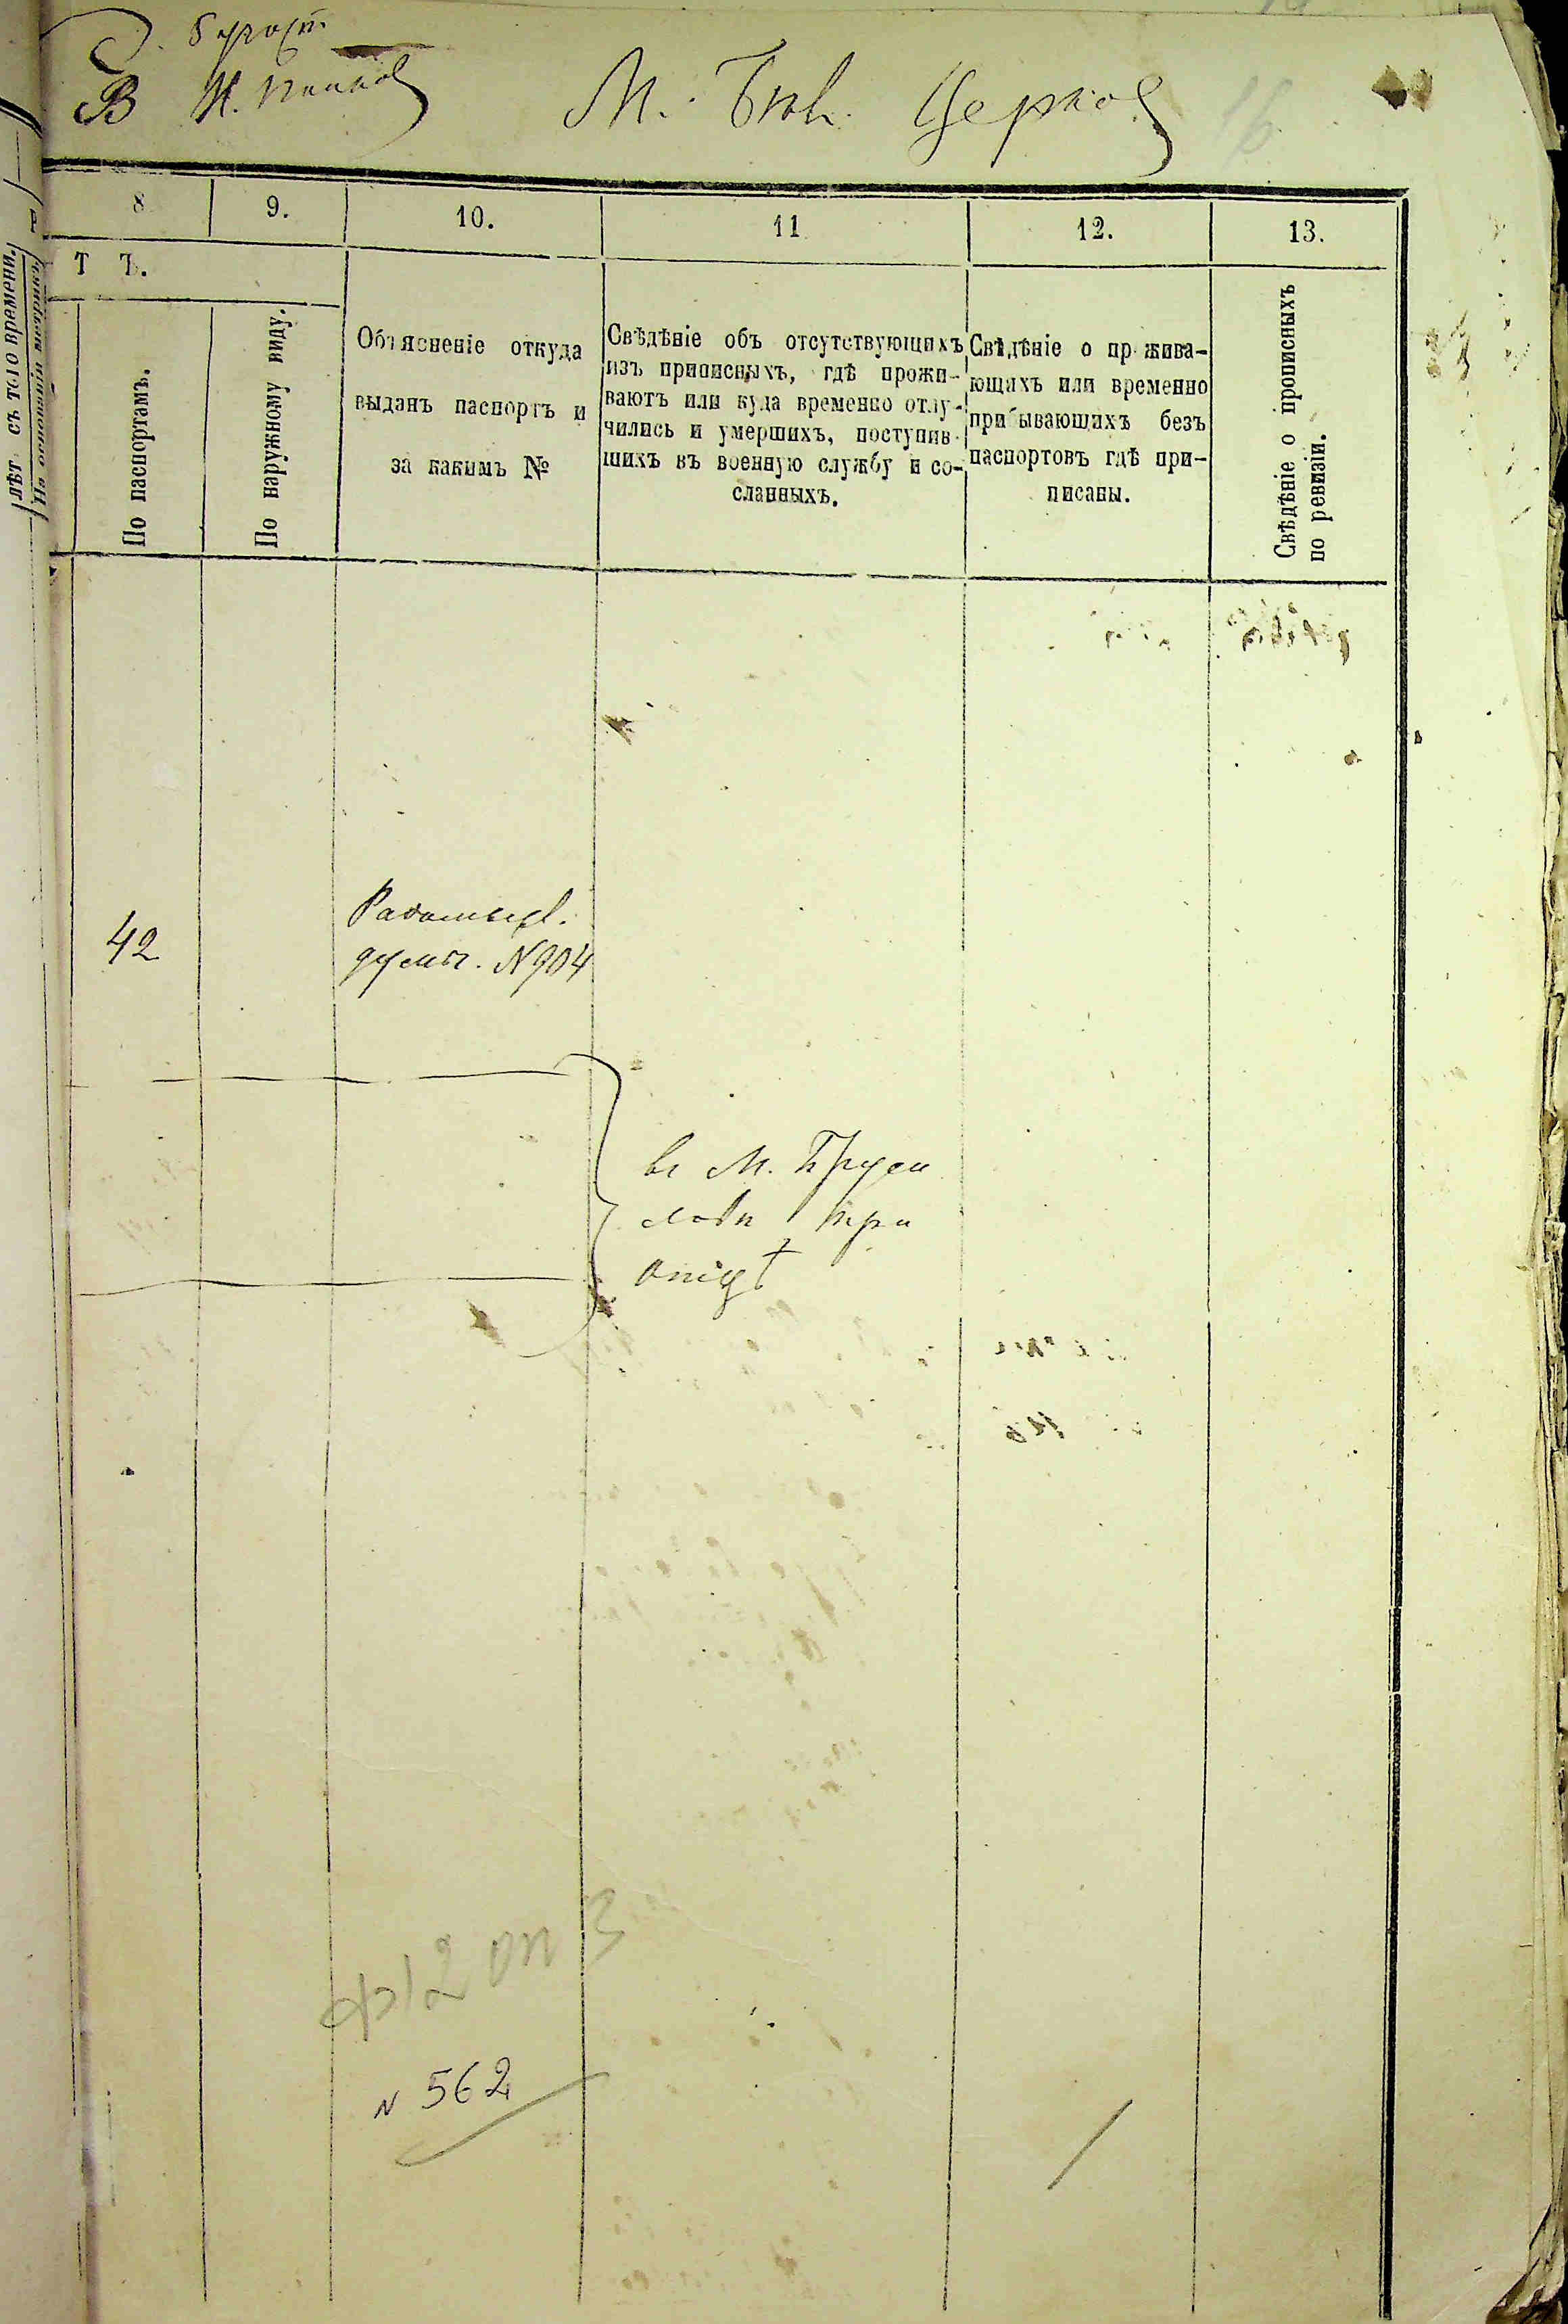 М. Бѣл. Церков
16
8 9. 10. 11 12. 13.
Т Ъ.
лѣт съ того времени.
По паспортамъ.
По наружному виду.
Объясненіе откуда
выданъ паспортъ и
за какимъ №
Свѣдѣніе объ отсутствующихъ
изъ приписныхъ, гдѣ прожи-
ваютъ или куда временно отлу-
чились и умершихъ, поступив-
шихъ въ военную службу и со-
сланныхъ.
Свѣдѣніе о прожива-
ющихъ или временно
прибывающихъ безъ
паспортовъ гдѣ при-
писаны.
Свѣдѣніе о прописныхъ
по ревизіи.
42
Радомысл.
думы. N 904
въ М. Бруси
ловѣ при
отцѣ
ф12 оп 3
N 562